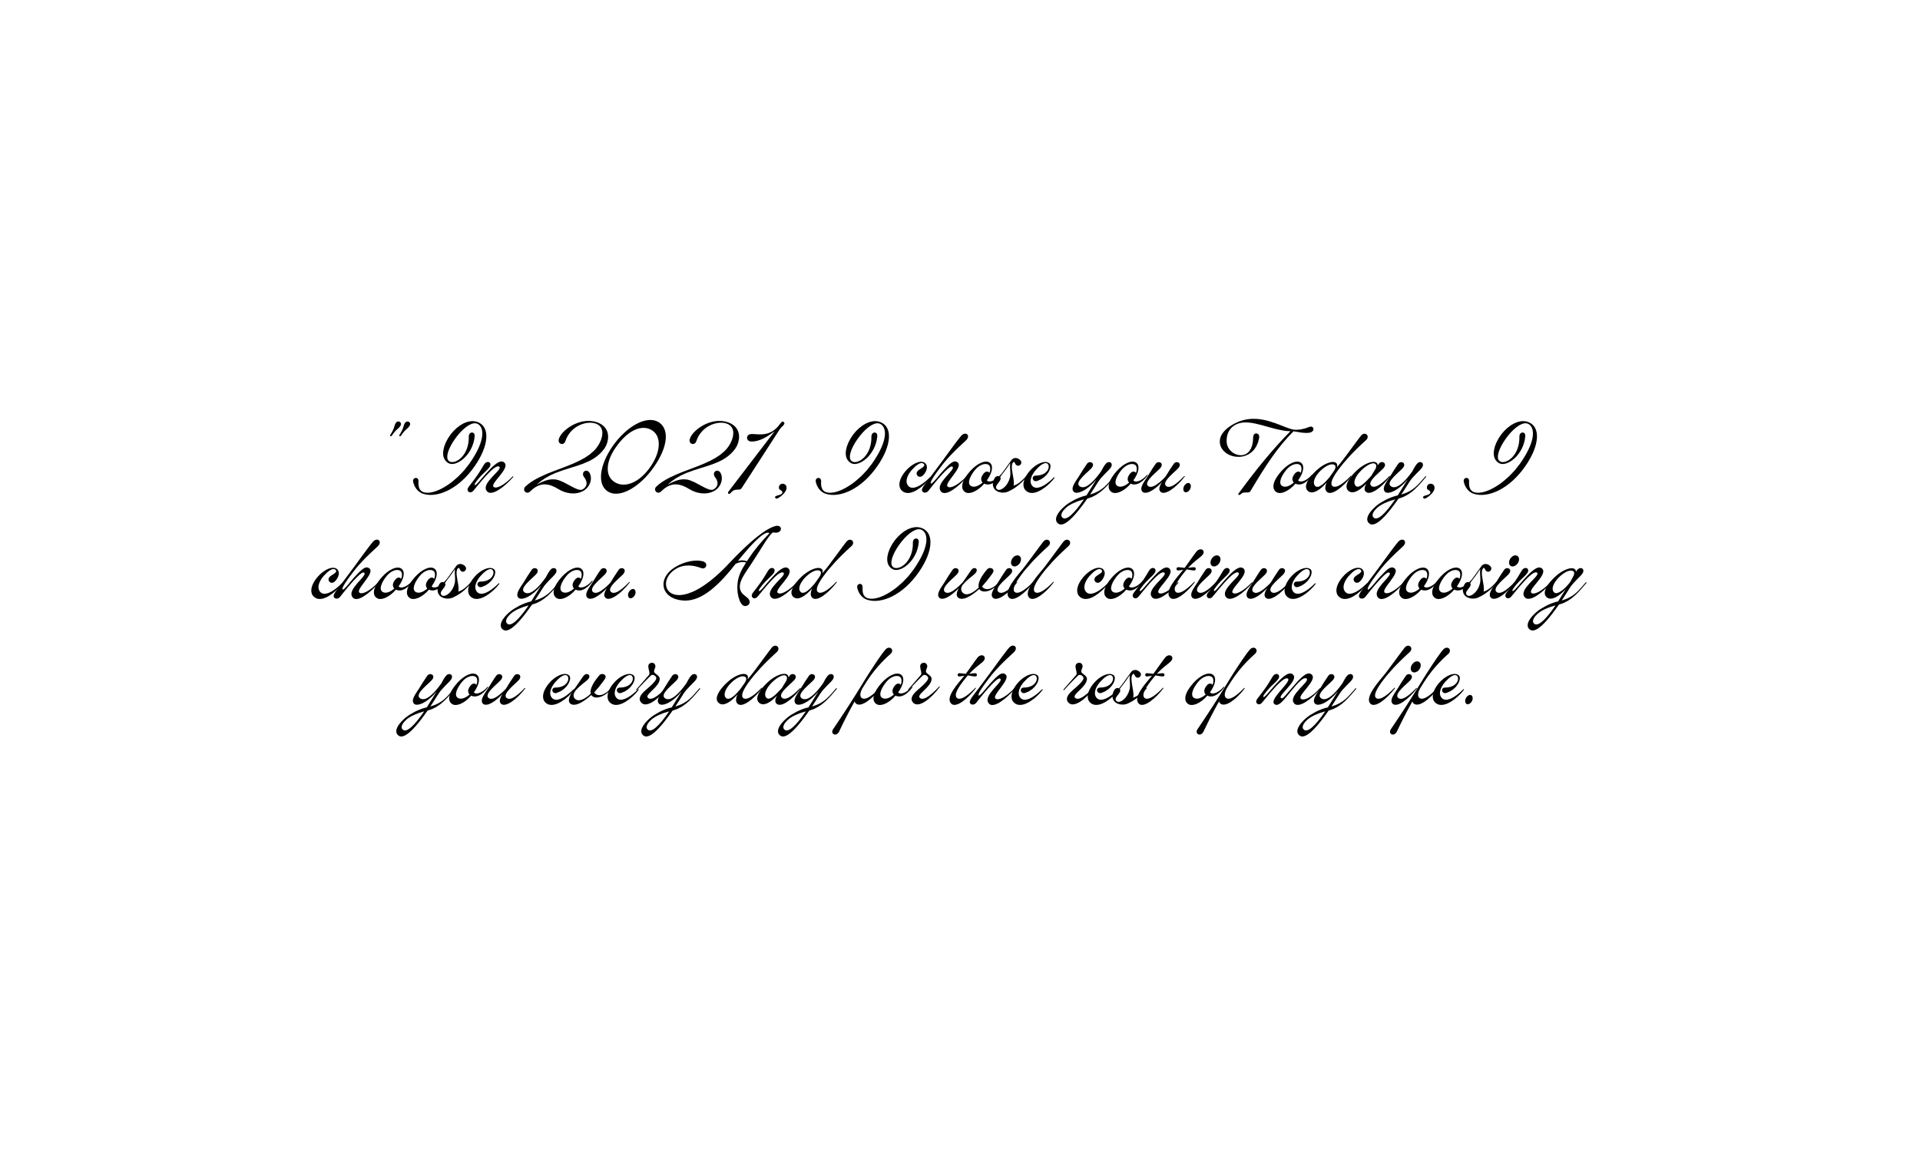 " In 2021, I chose you. Today, I
choose you. And I will continue choosing
you every day for the rest of my life.